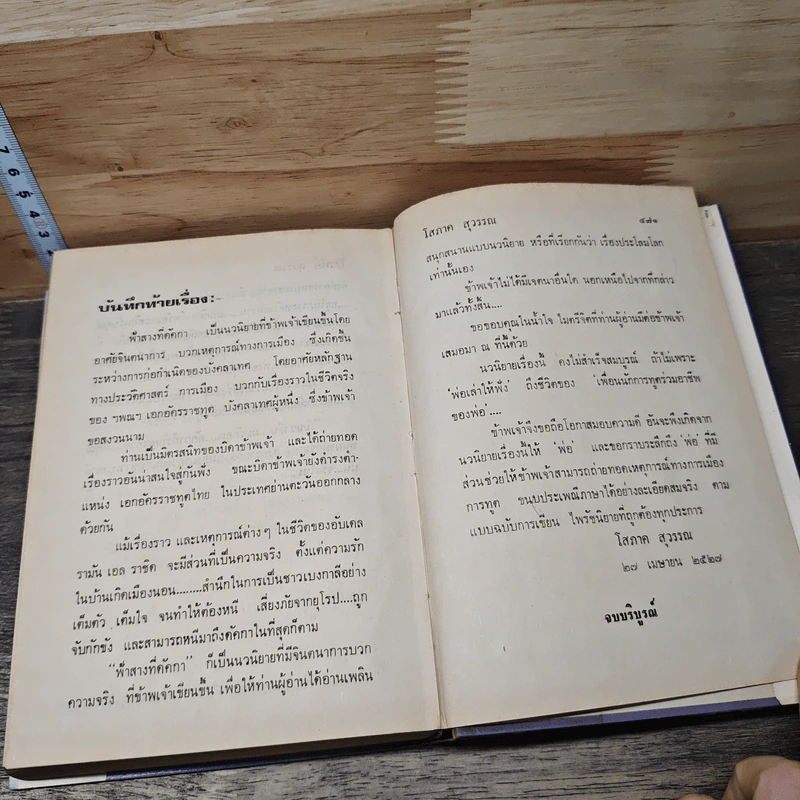 บันทึกท้ายเรื่อง:-
ฟ้าสางที่ดัคกา เป็นนวนิยายที่ข้าพเจ้าเขียนขึ้นโดย
อาศัยจินตนาการ บวกเหตุการณ์ทางการเมือง ซึ่งเกิดขึ้น
ระหว่างการก่อกำเนิดของบังคลาเทศ โดยอาศัยหลักฐาน
ทางประวัติศาสตร์ การเมือง บวกกับเรื่องราวในชีวิตจริง
ของ ฯพณฯ เอกอัครราชทูต บังคลาเทศผู้หนึ่ง ซึ่งข้าพเจ้า
ขอสงวนนาม
ท่านเป็นมิตรสนิทของบิดาข้าพเจ้า และได้ถ่ายทอด
เรื่องราวอันน่าสนใจสู่กันฟัง ขณะบิดาข้าพเจ้ายังดำรงตำ-
แหน่ง เอกอัครราชทูตไทย ในประเทศย่านตะวันออกกลาง
ด้วยกัน
แม้เรื่องราว และเหตุการณ์ต่างๆ ในชีวิตของอับเดล
รามัน เอล ราชิด จะมีส่วนที่เป็นความจริง ตั้งแต่ความรัก
ในบ้านเกิดเมืองนอน........สำนึกในการเป็นชาวเบงกาลีอย่าง
เต็มตัว เต็มใจ จนทำให้ต้องหนี เสี่ยงภัยจากยุโรป....ถูก
จับกักขัง และสามารถหนีมาถึงดัคกาในที่สุดก็ตาม
"ฟ้าสางที่ดัคกา" ก็เป็นนวนิยายที่มีจินตนาการบวก
ความจริง ที่ข้าพเจ้าเขียนขึ้น เพื่อให้ท่านผู้อ่านได้อ่านเพลิน
โสภาค สุวรรณ ๔๗๑
สนุกสนานแบบนวนิยาย หรือที่เรียกกันว่า เรื่องประโลมโลก
เท่านั้นเอง
ข้าพเจ้าไม่ได้มีเจตนาอื่นใด นอกเหนือไปจากที่กล่าว
มาแล้วทั้งสิ้น....
ขอขอบคุณในน้ำใจ ไมตรีจิตที่ท่านผู้อ่านมีต่อข้าพเจ้า
เสมอมา ณ ที่นี้ด้วย
นวนิยายเรื่องนี้ คงไม่สำเร็จสมบูรณ์ ถ้าไม่เพราะ
'พ่อเล่าให้ฟัง' ถึงชีวิตของ 'เพื่อนนักการทูตร่วมอาชีพ
ของพ่อ'....
ข้าพเจ้าจึงขอถือโอกาสมอบความดี อันจะพึงเกิดจาก
นวนิยายเรื่องนี้ให้ 'พ่อ' และขอกราบระลึกถึง 'พ่อ' ที่มี
ส่วนช่วยให้ข้าพเจ้าสามารถถ่ายทอดเหตุการณ์ทางการเมือง
การทูต ขนบประเพณีภาษาได้อย่างละเอียดสมจริง ตาม
แบบฉบับการเขียน ไพรัชนิยายที่ถูกต้องทุกประการ
โสภาค สุวรรณ
๒๗ เมษายน ๒๕๒๗
จบบริบูรณ์
7
6
5
4
3